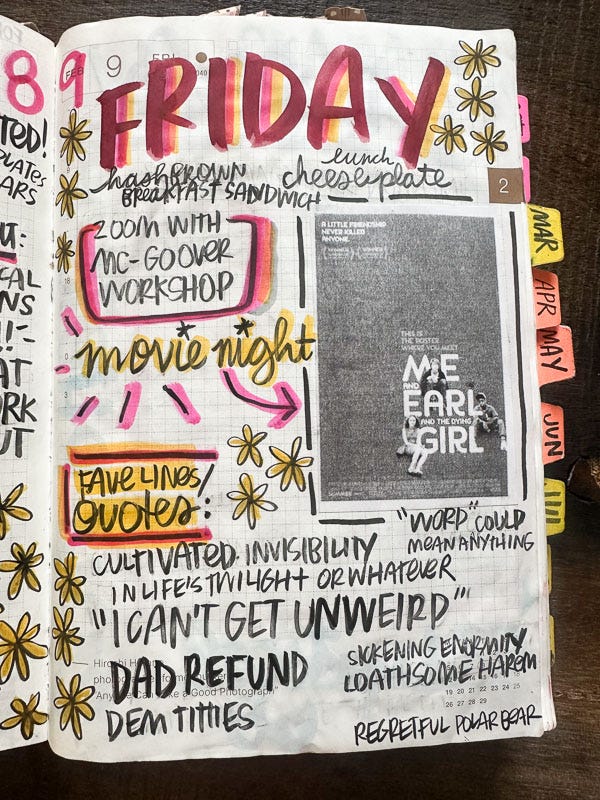 8
TED!
PLATES
ARS
CAL
NS
AT
ORK
OUT
9
FEB
9
FRI
FRIDAY
hashbrown
BREAKFAST SANDWICH
lunch
cheese plate
2
ZOOM WITH
MC-GOOVER
WORKSHOP
movie night
A LITTLE FRIENDSHIP
NEVER KILLED
ANYONE.
THIS IS
THE POSTER
WHERE YOU MEET
ME
AND
EARL
AND THE DYING
GIRL
MAR
APR
MAY
JUN
FAVE LINES/
QUOTES:
"WORD" COULD
MEAN ANYTHING
CULTIVATED INVISIBILITY
IN LIFE'S TWILIGHT OR WHATEVER
"I CAN'T GET UNWEIRD"
DAD REFUND
DEM TITTIES
SICKENING ENORMITY
LOATHSOME HAREM
19 20 21 22 23 24 25
26 27 28 29
REGRETFUL POLAR BEAR